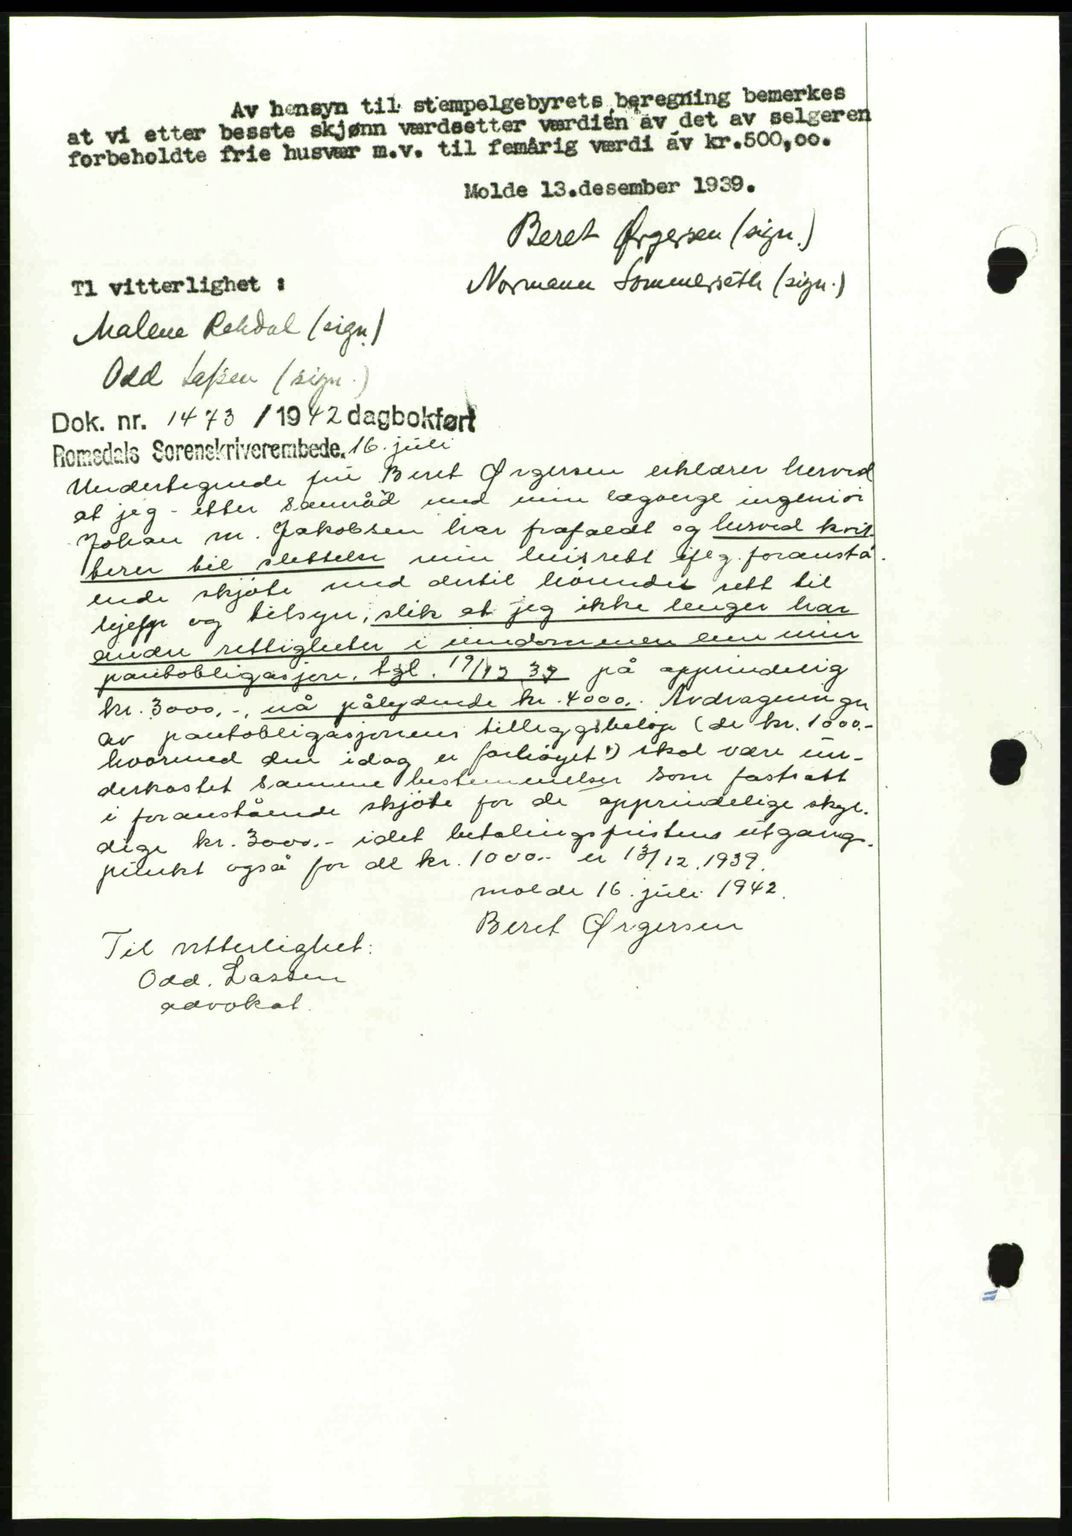 Av hensyn til stempelgebyrets beregning bemerkes
at vi etter besste skjønn værdsetter værdien av det av selgeren
forbeholdte frie husvær m.v. til femårig værdi av kr.500,oo.
Molde 13.desember 1939.
Beret Ørgersen (sign.)
Normann Sommerseth (sign.)
Tl vitterlighet :
Malene Rekdal (sign.)
Odd Lassen (sign.)
Dok. nr. 1473 / 1942 dagbokført
Romsdals Sorenskriverembede. 16. juli
Undertegnede fru Beret Ørgersen erklærer herved
at jeg - etter samråd med min lagverge ingeniør
Johan M. Jakobsen har frafaldt og herved kvit-
terer til slettelse min leierett efteg. foranstå-
ende skjøte med dertil hörende rett til
hjelp og tilsyn, slik at jeg ikke lenger har
andre rettigheter i eiendommen enn min
pantobligasjon, tgl. 19/12 39 på opprindelig
kr. 3000.-, nå pålydende kr. 4000.-. Avdragningen
av pantobligasjonens tilleggsbeløp (de kr. 1000.-
hvormed den idag er forhøyet) skal være un-
derkastet samme bestemmelser som fastsatt
i foranstående skjøte for de opprindelige skyl-
dige kr. 3000.- idet betalingsfristens utgangs-
punkt også for de kr. 1000.- er 13/12.1939.
Molde 16. juli 1942.
Beret Ørgersen
Til vitterlighet:
Odd. Lassen
advokat.